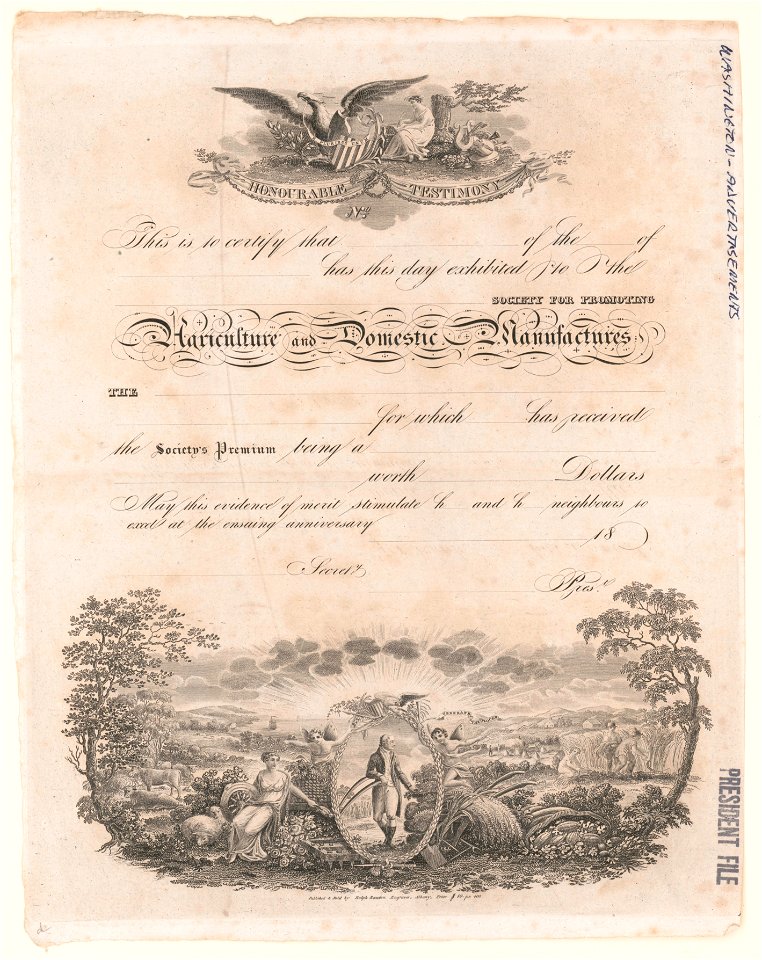 HONOURABLE TESTIMONY
No.
This is to certify that of the of
has this day exhibited to the
SOCIETY FOR PROMOTING
Agriculture and Domestic Manufactures
THE
for which has received
the Society's Premium being a
worth Dollars
May this evidence of merit stimulate h and h neighbours to
excel at the ensuing anniversary 18
Secret.y
Pres.t
Published & Sold by Ralph Rawdon Engraver, Albany, Price $ per 100
WASHINGTON - ADVERTISEMENTS
PRESIDENT FILE